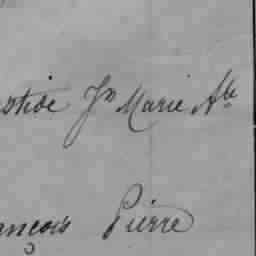 stide Jn Marie Ale
ançois Pierre